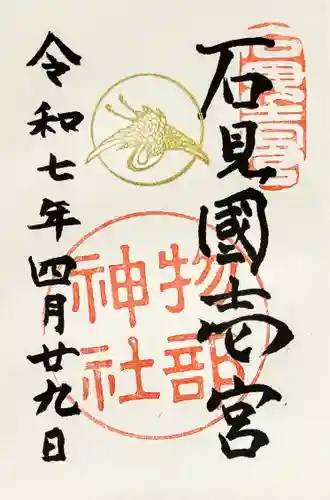 石見國壱宮
物部
神社
令和七年四月廿九日